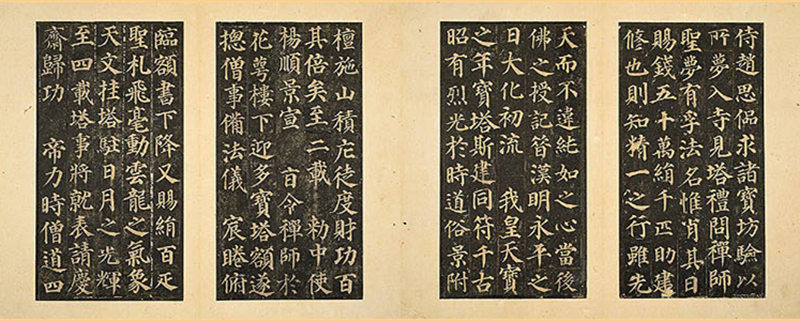 侍趙思侶求諸寶坊驗以
所夢入寺見塔禮問禪師
聖夢有孚法名惟肖其日
賜錢五十萬絹千匹助建
修也則知精一之行雖先
天而不違純如之心當後
佛之授記昔漢明永平之
日大化初流 我皇天寶
之年寶塔斯建同符千古
昭有烈光於時道俗景附
檀施山積庀徒度財功百
其倍矣至二載 勑中使
楊順景宣 旨令禪師於
花萼樓下迎多寶塔額遂
揔僧事備法儀 宸睠俯
臨額書下降又賜絹百疋
聖札飛毫動雲龍之氣象
天文挂塔駐日月之光輝
至四載塔事將就表請慶
齋歸功 帝力時僧道四